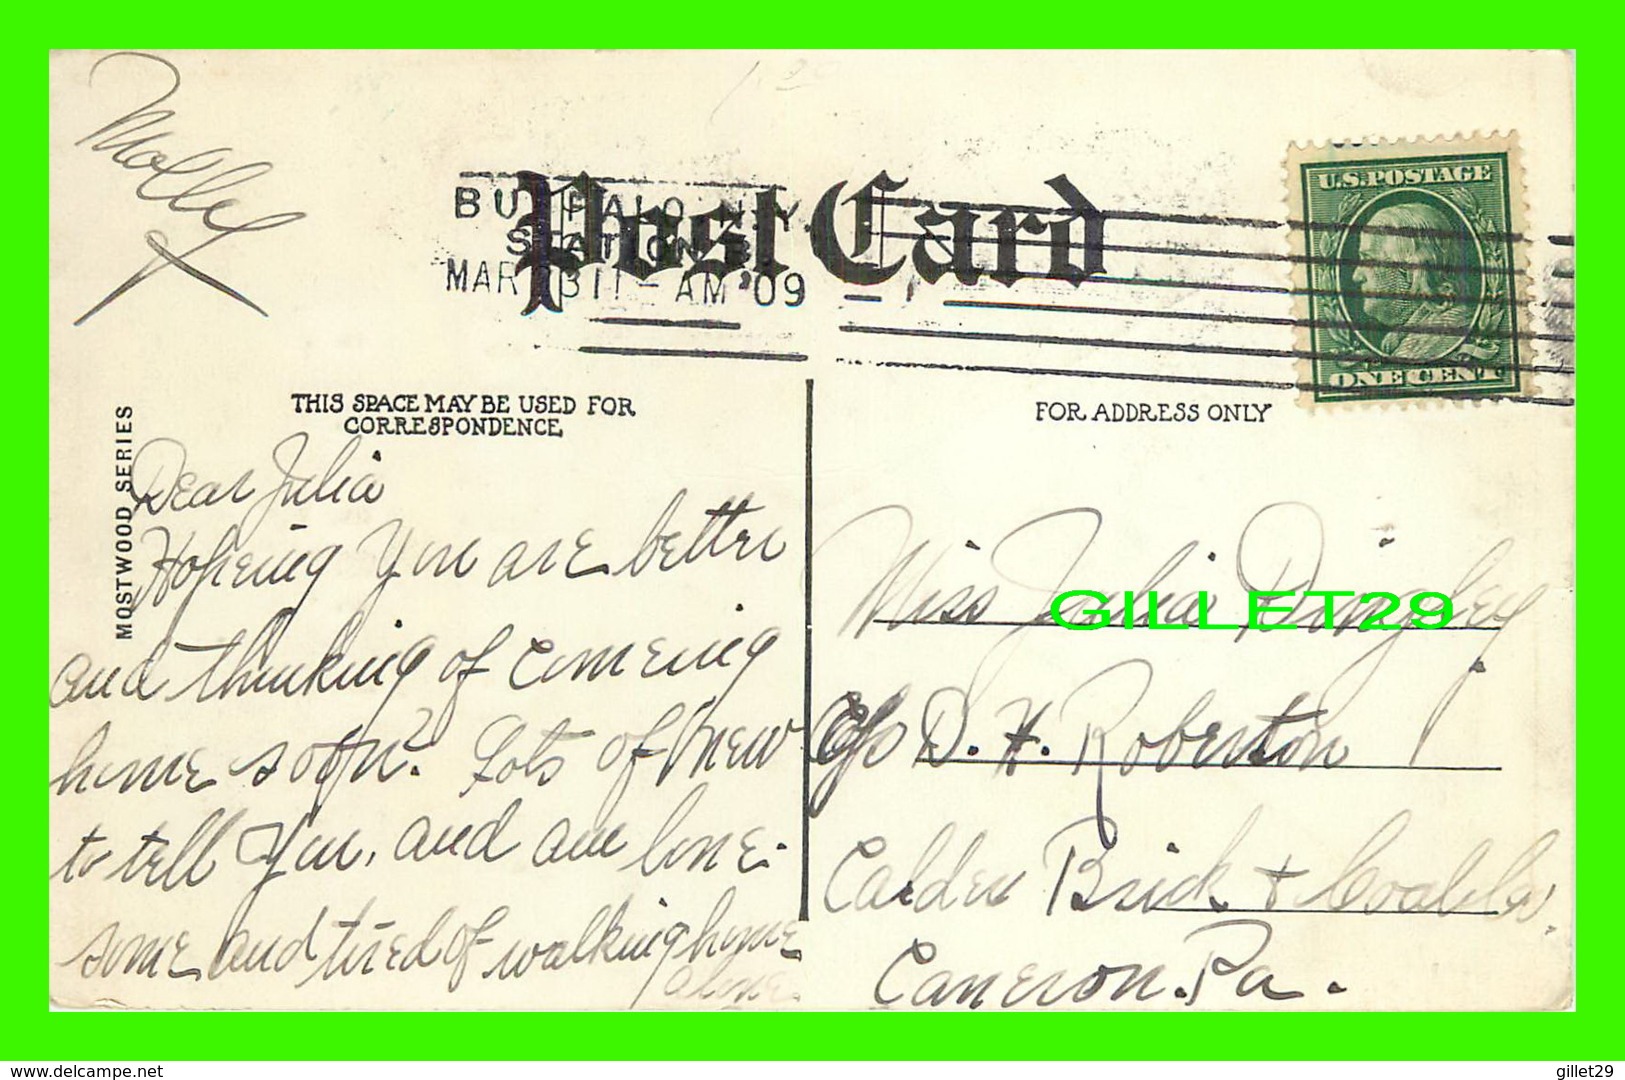 Molley
X
BUFFALO N.Y.
STATION
MAR 3 11 - AM '09
Post Card
U.S. POSTAGE
ONE CENT
THIS SPACE MAY BE USED FOR
CORRESPONDENCE
FOR ADDRESS ONLY
MOSTWOOD SERIES
Dear Julia
Hopeing you are better
and thinking of comeing
home soon? Lots of new
to tell you, and am lone-
some and tired of walking home
alone.
Miss Julia Dingley
GILLET29
c/o D. H. Roberton
Calder Brick & Coal Co.
Cameron. Pa.
Delcampe.net
gillet29